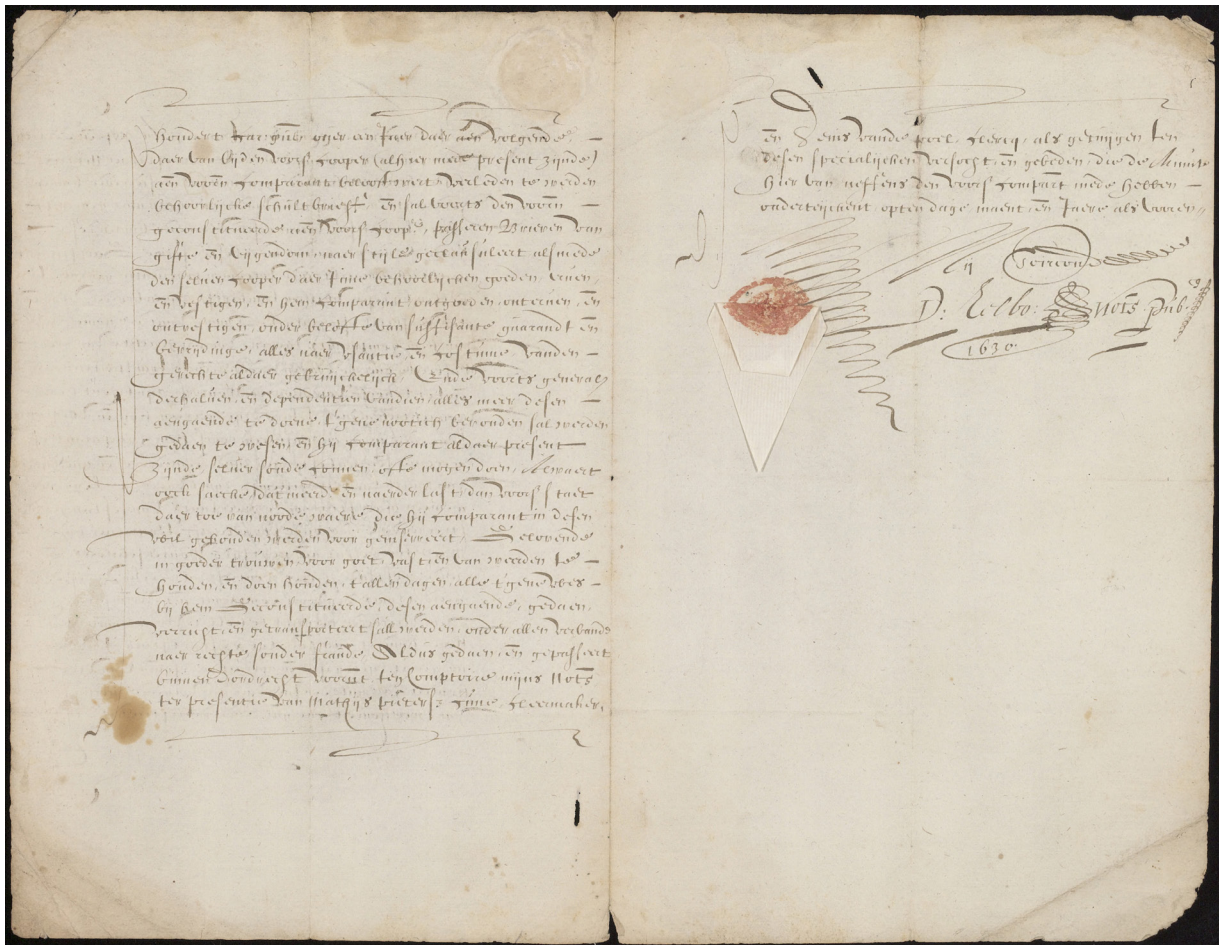 hondert kar gůb over een Jaer daer aen volgende
daer van bij den voors Cooper (alhier mede present zijnde)
aen voorn Comparante belooft wert verleden te werden
behoorlijcke schult brieff, en sal voorts den voorn
geconstitueerde aen voors Cooper, passeren Brieven van
gifte en eijgendom naer stijle geclausuleert als mede
den selven Cooper daer Inne behoorlijcken goeden, erven
en vestigen, en hem Comparant ontgoeden onterven, en
ontvestigen, onder belofte van suffisante guarandt en
bevrijdinge, alles naer usantie en Costume vanden
gerechte aldaer gebruijckelijck, Ende voorts generalz
derhalven, en dependentien vandien, alles meer desen
aengaende te doene, tgene nootich bevonden sal werden
gedaen te wesen, en hij Comparant aldaer present
zijnde selver soude connen ofte mogen doen, Alwaert
oock saecke dat meerd en naerder last dan voors staet
daer toe van noode waere, die hij Comparant in desen
wil gehouden werden voor geinsereert, Gelovende
in goeder trouwen voor goet vast en van waerden te
houden, en doen houden, tallen dagen alle tgene wes
bij hem Geconstitueerde, desen aengaende, gedaen,
verricht, en getransporteert sall werden, onder allen verbande
naer rechte sonder fraude, Aldus gedaen, en gepasseert
binnen dordrecht voornt ten Comptoire mijns Nots
ter presentie van Mathijs pieters Cleermaker,
en Denis vande poel, Clercq, als getuijgen ten
desen specialijcken versocht, en gebeden, die de Minute
hier van neffens den voors Compart mede hebben
onderteijckent, opten dage maent, en Jaere als vooren,
D: Eelbo: Nots Pub
1630.